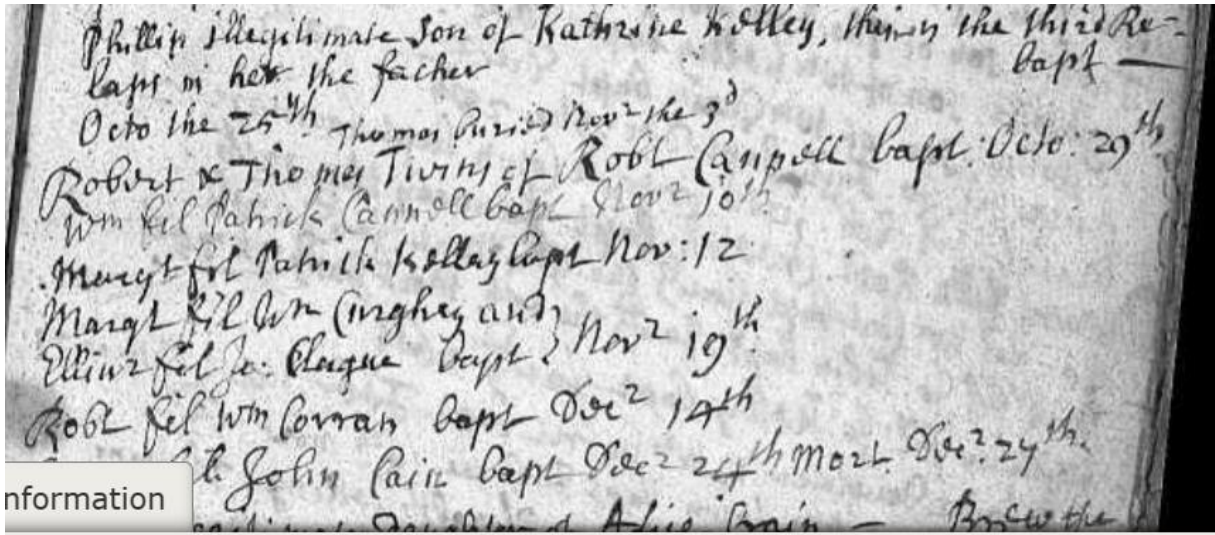 Phillip illegitimate Son of Kathrine Kelley, this is the third Re-
laps in her the facher bapt —
Octo the 25th Thomas buried Novr the 3d
Robert & Thomas Twins of Robt Cannell bapt: Octo: 29th
Wm fil Patrick Cannell bapt Novr 10th
Margt fil Patrick Kelley bapt Nov: 12
Margt fil Wm Curghey and
Ellinr fil Jo: Clague bapt } Novr 19th
Robt fil Wm Corran bapt Decr 14th
fil. John Cain bapt Decr 24th Mort. Decr. 27th.
nformation
Daughter of Alice Crain — Brew the